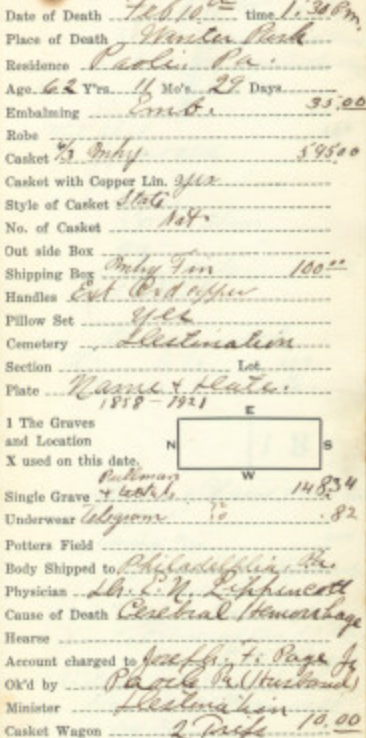 Date of Death Feb 10th time 1:30 Pm.
Place of Death Winter Park
Residence Paoli, Pa.
Age 62 Y'rs. 11 Mo's 29 Days
Embalming Emb. 35.00
Robe
Casket Mhy 595 00
Casket with Copper Lin. yes
Style of Casket State
No. of Casket Nat
Out side Box
Shipping Box Mhy Fin 100.00
Handles Ext
Pillow Set Yes
Cemetery Destination
Section Lot
Plate Name & Date.
1858-1921
1 The Graves
and Location
X used on this date.
E
N S
W
Pullman
Single Grave & 148.34
Underwear Telegram .82
Potters Field
Body Shipped to Philadelphia, Pa.
Physician Dr. C. N. Lippincott
Cause of Death Cerebral Hemorrhage
Hearse
Account charged to Joseph F. Page Jr
Ok'd by Paoli Pa (Husband)
Minister Destination
Casket Wagon 2 Trips 10.00